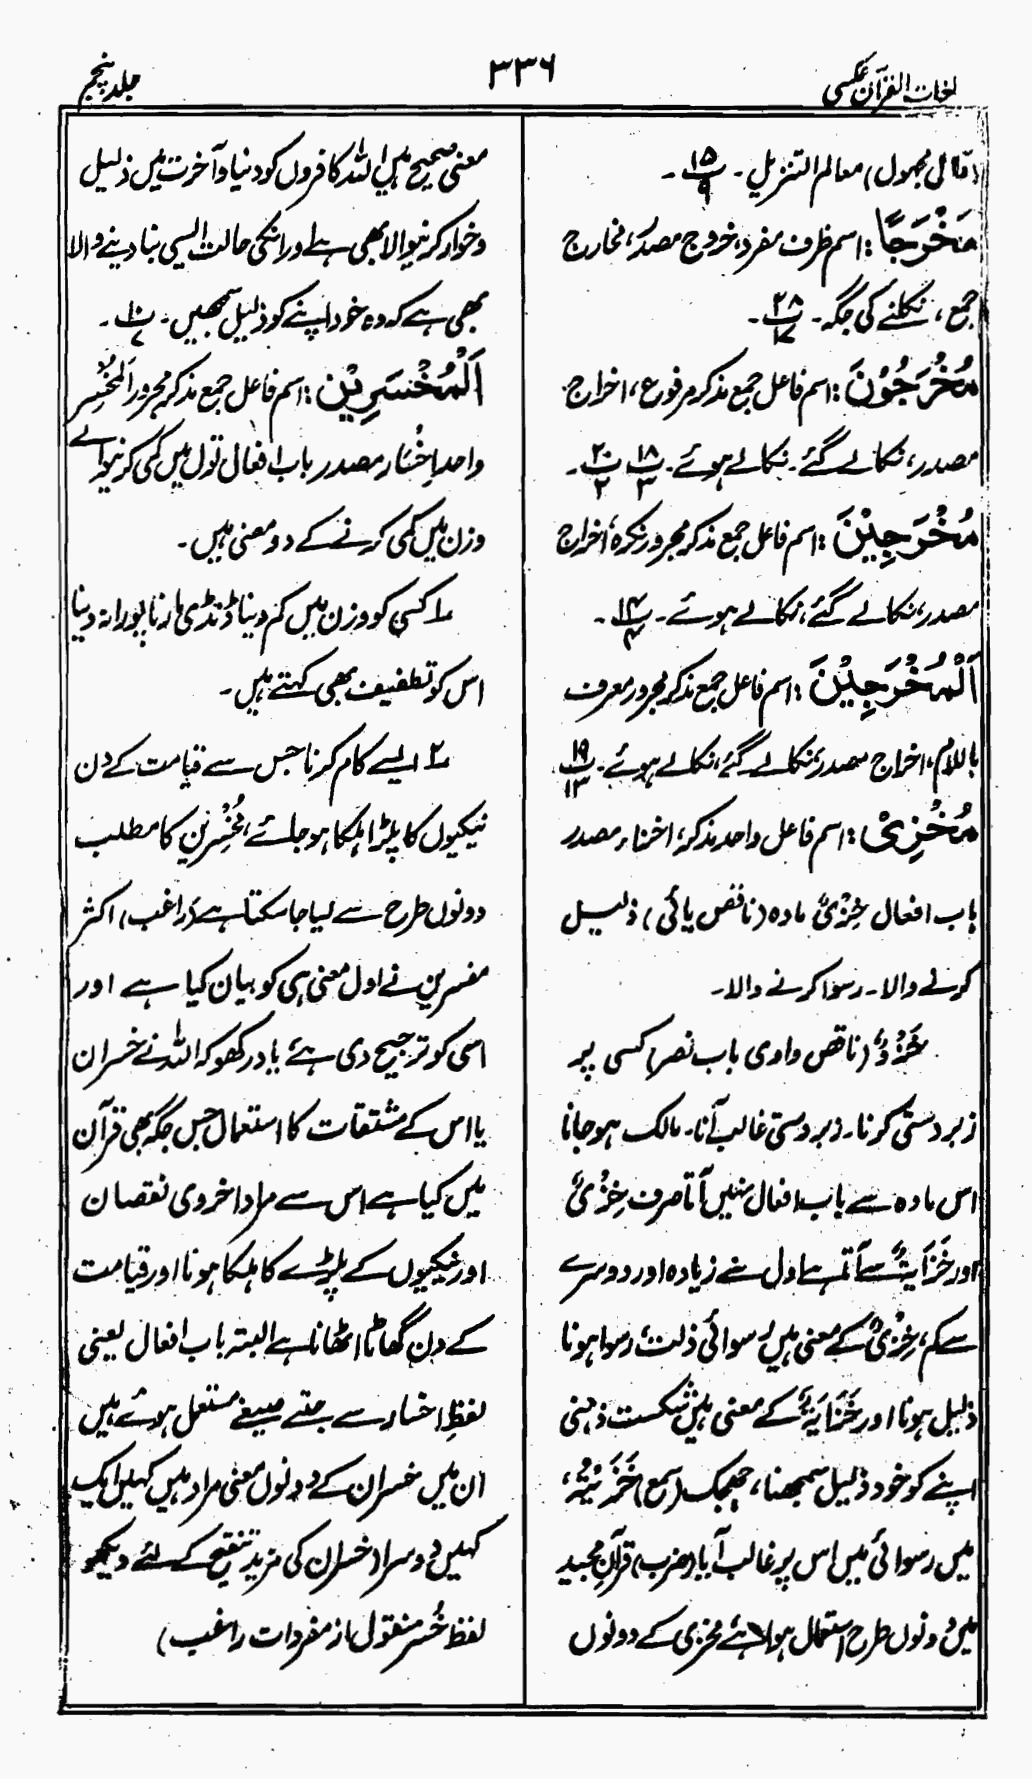 لغات القرآن عکسی
۳۳۶
جلد پنجم
(قال مجہول) معالم التنزیل۔ پ ۱۵/۹۔
مَخْرَجًا: اسم ظرف مفرد، خروج مصدر، مخارج
جمع، نکلنے کی جگہ۔ پ ۲۸/۱۷۔
مُخْرَجُوْنَ: اسم فاعل جمع مذکر مرفوع، اخراج
مصدر، نکالے گئے۔ نکالے ہوئے۔ پ ۱۸/۳ پ ۲۰/۲۔
مُخْرَجِیْنَ: اسم فاعل جمع مذکر مجرور نکرہ، اخراج
مصدر، نکالے گئے، نکالے ہوئے۔ پ ۱۴/۴۔
اَلْمُخْرَجِیْنَ: اسم فاعل جمع مذکر مجرور معرف
باللام، اخراج مصدر، نکالے گئے، نکالے ہوئے۔ پ ۱۹/۱۳
مُخْزِیْ: اسم فاعل واحد مذکر، اخزاء مصدر
باب افعال خِزْیٌ مادہ (ناقص یائی) ذلیل
کرنے والا۔ رسوا کرنے والا۔
خَزْوٌ (ناقص وادی باب نصر) کسی پر
زبردستی کرنا۔ زبردستی غالب آنا۔ مالک ہو جانا
اس مادہ سے باب افعال نہیں آتا صرف خِزْیٌ
اور خَزَایَۃٌ سے آتا ہے اول سے زیادہ اور دوسرے
سے کم، خِزْیٌ کے معنی ہیں رسوائی ذلت، رسوا ہونا
ذلیل ہونا اور خَزَایَۃٌ کے معنی ہیں شکست ذہنی
اپنے کو خود ذلیل سمجھنا، جھجک (سمع) خَزَیْتُہٗ،
میں رسوائی میں اس پر غالب آیا (ضرب) قرآن مجید
میں دونوں طرح استعمال ہوا ہے مخزی کے دونوں
معنی صحیح ہیں اللہ کافروں کو دنیا و آخرت میں ذلیل
و خوار کرنیوالا بھی ہے اور انکی حالت ایسی بنا دینے والا
بھی ہے کہ وہ خود اپنے کو ذلیل سمجھیں۔ پ ۱۰/۷۔
اَلْمُخْسَرِیْن: اسم فاعل جمع مذکر مجرور اَلمُخْسِر
واحد اِخْسَار مصدر باب افعال تول میں کمی کرنیوالے
وزن میں کمی کرنے کے دو معنی ہیں۔
۱؂ کسی کو وزن میں کم دینا ڈنڈی مارنا پورا نہ دینا
اس کو تطفیف بھی کہتے ہیں۔
۲؂ ایسے کام کرنا جس سے قیامت کے دن
نیکیوں کا پلڑا ہلکا ہو جائے، مُخْسِرِین کا مطلب
دونوں طرح سے لیا جا سکتا ہے (راغب) اکثر
مفسرین نے اول معنی ہی کو بیان کیا ہے اور
اسی کو ترجیح دی ہے یاد رکھو کہ اللہ نے خسران
یا اس کے مشتقات کا استعمال جس جگہ بھی قرآن
میں کیا ہے اس سے مراد اخروی نقصان
اور نیکیوں کے پلڑے کا ہلکا ہونا اور قیامت
کے دن گھاٹا اٹھانا ہے البتہ باب افعال یعنی
لفظِ اخسار سے جتنے صیغے مستعمل ہوئے ہیں
ان میں خسران کے دونوں معنی مراد ہیں کہیں ایک
کہیں دوسرا (خسران کی مزید تنقیح کے لئے دیکھو
لفظ خُسر منقول از مفردات راغب)